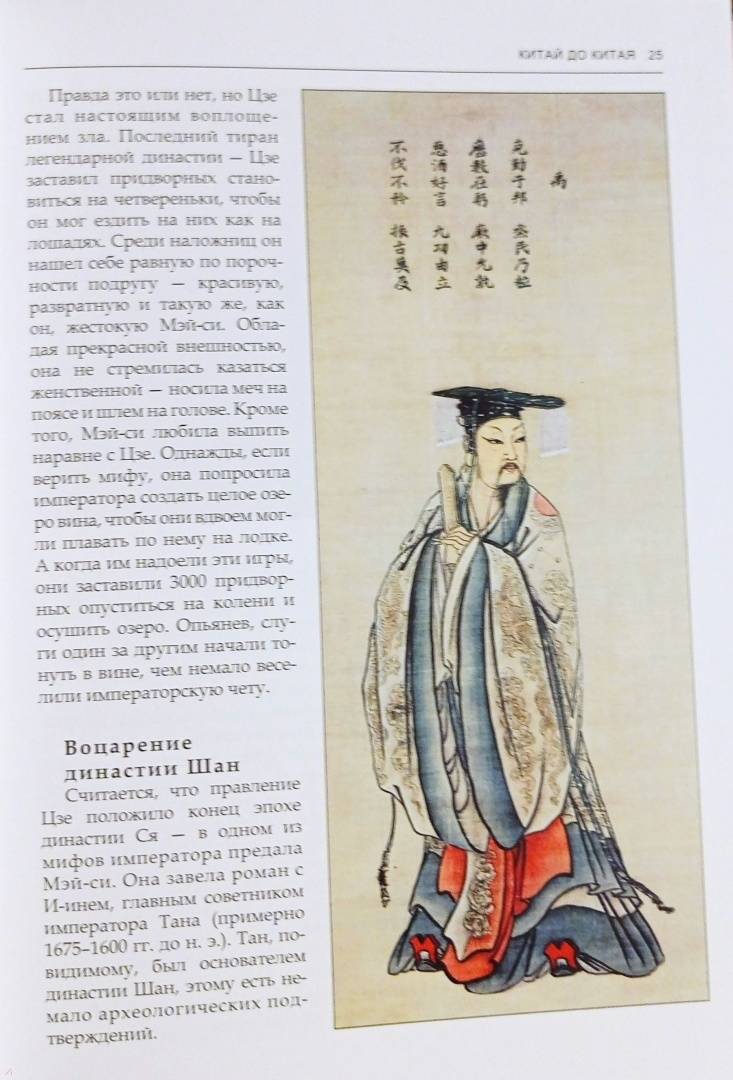 КИТАЙ ДО КИТАЯ 25
Правда это или нет, но Цзе
стал настоящим воплоще-
нием зла. Последний тиран
легендарной династии — Цзе
заставил придворных стано-
виться на четвереньки, чтобы
он мог ездить на них как на
лошадях. Среди наложниц он
нашел себе равную по пороч-
ности подругу — красивую,
развратную и такую же, как
он, жестокую Мэй-си. Обла-
дая прекрасной внешностью,
она не стремилась казаться
женственной — носила меч на
поясе и шлем на голове. Кроме
того, Мэй-си любила выпить
наравне с Цзе. Однажды, если
верить мифу, она попросила
императора создать целое озе-
ро вина, чтобы они вдвоем мог-
ли плавать по нему на лодке.
А когда им надоели эти игры,
они заставили 3000 придвор-
ных опуститься на колени и
осушить озеро. Опьянев, слу-
ги один за другим начали то-
нуть в вине, чем немало весе-
лили императорскую чету.
Воцарение
династии Шан
Считается, что правление
Цзе положило конец эпохе
династии Ся — в одном из
мифов императора предала
Мэй-си. Она завела роман с
И-инем, главным советником
императора Тана (примерно
1675–1600 гг. до н. э.). Тан, по-
видимому, был основателем
династии Шан, этому есть не-
мало археологических под-
тверждений.
禹
克勤于邦 烝民乃粒
厯數在躬 厥中允執
惡酒好言 九功由立
不伐不矜 振古莫及